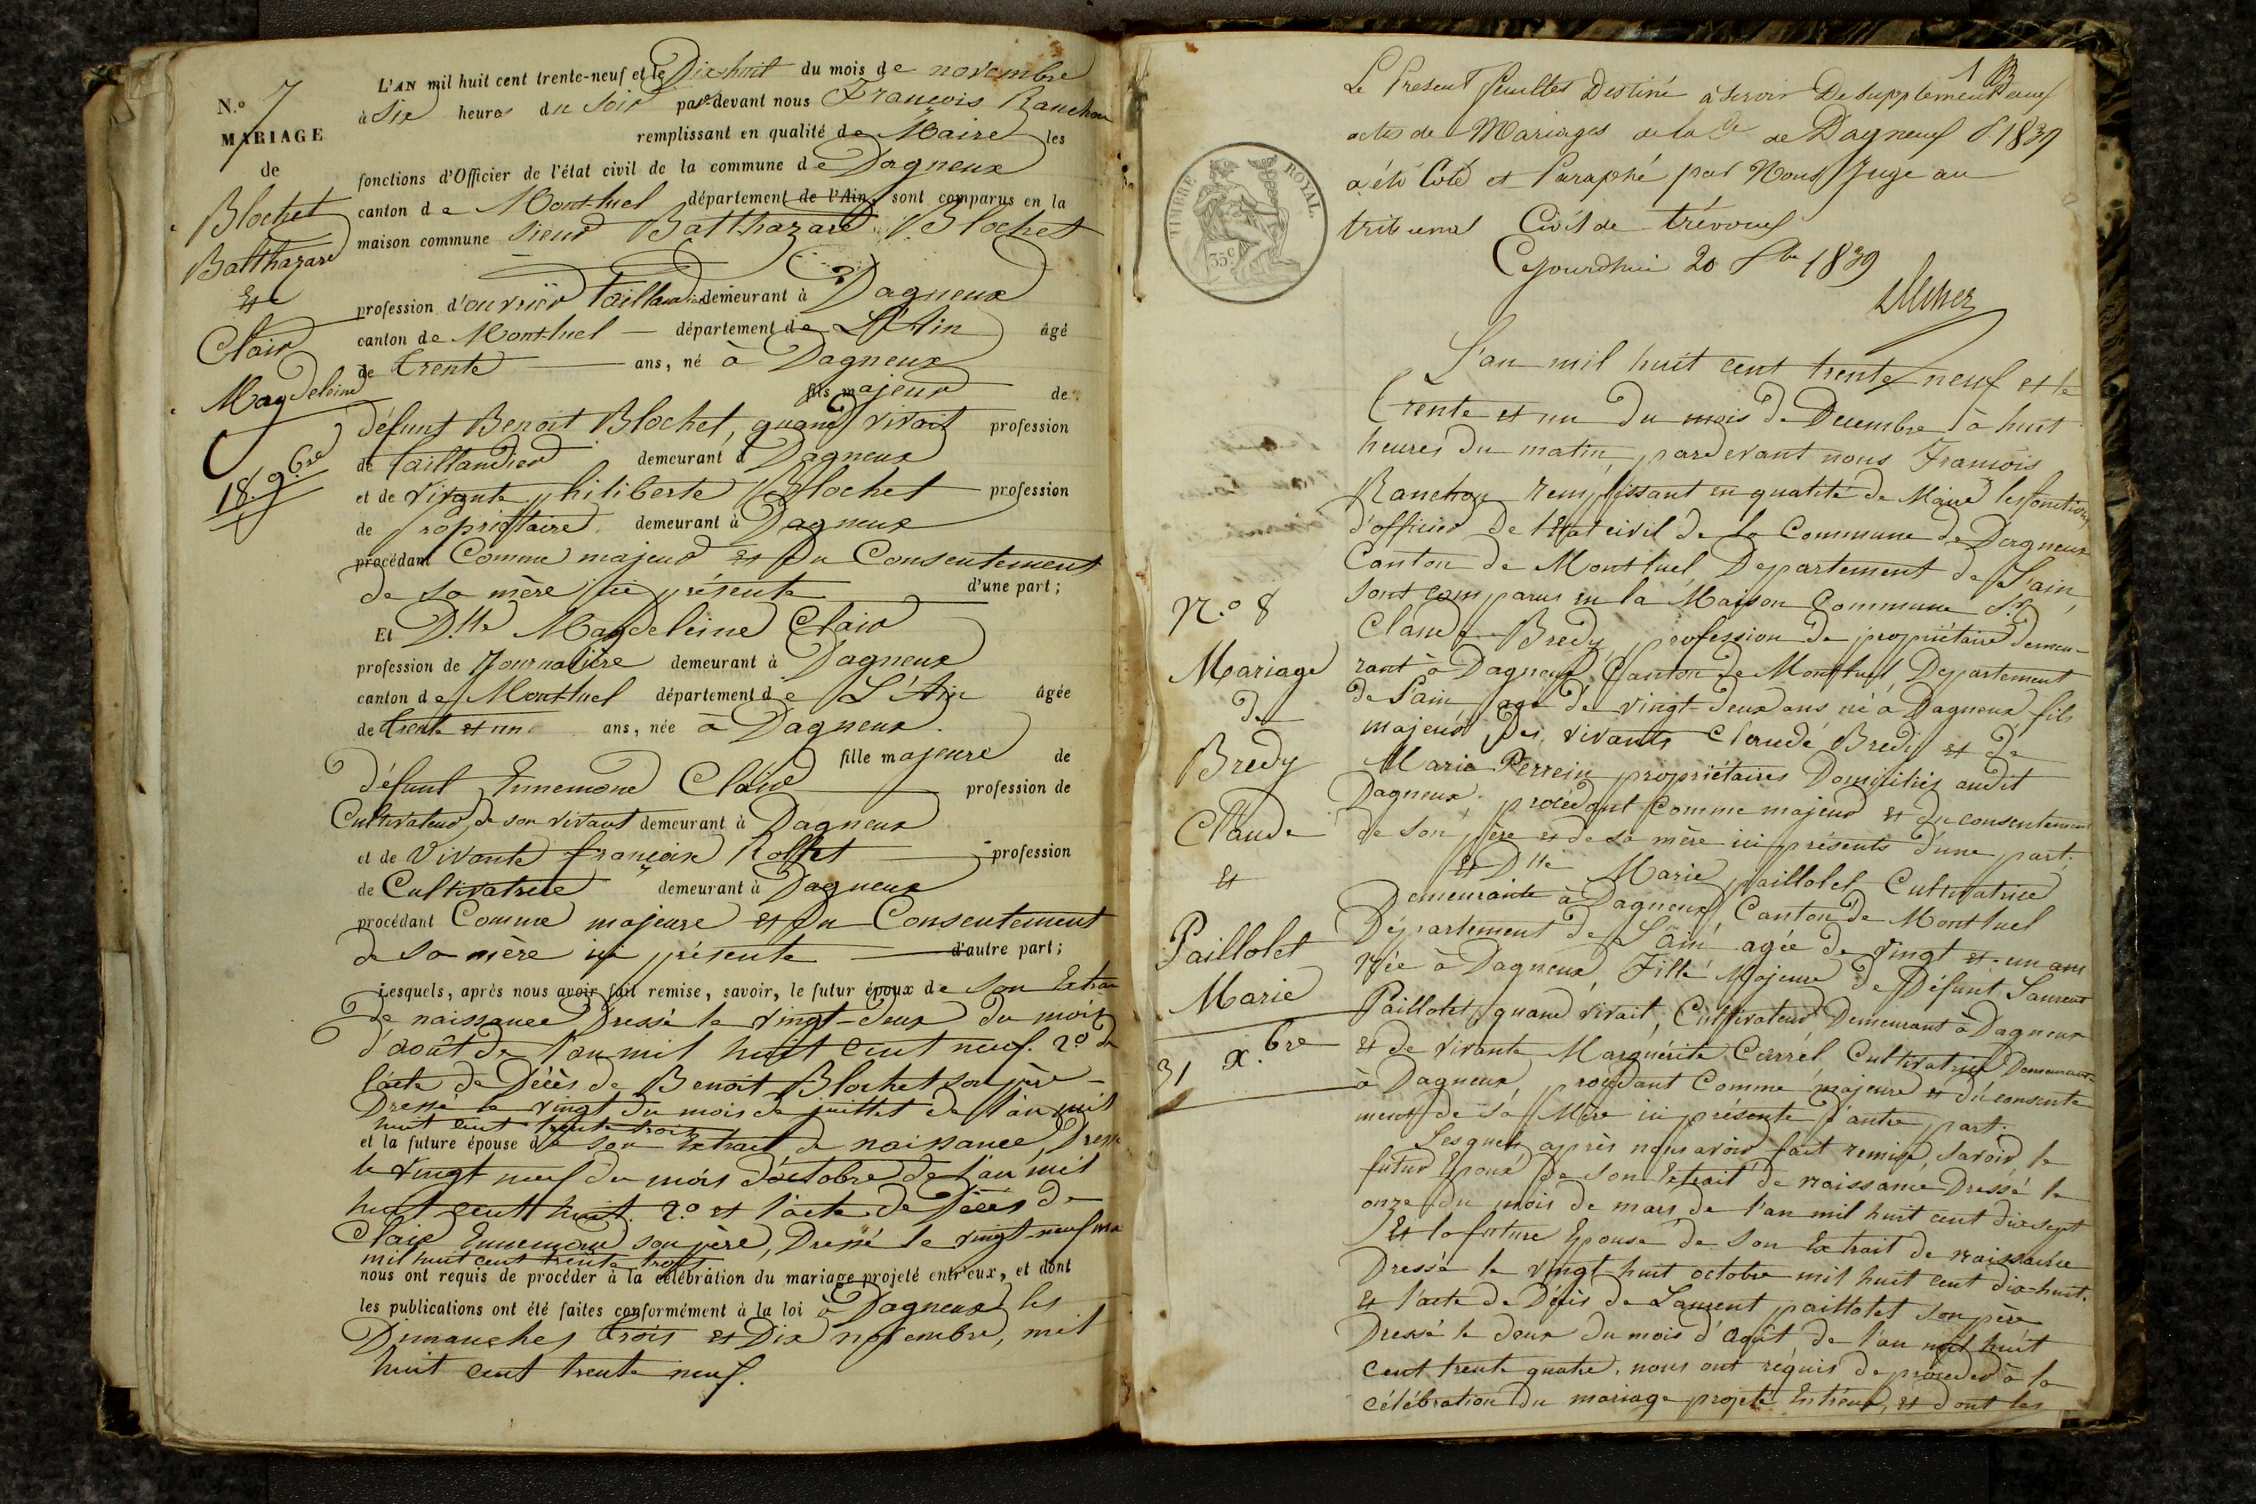 N.o 7
MARIAGE
de
Blochet
Balthazard
Et
Clair
Magdeleine
18. 9.bre
L'AN mil huit cent trente-neuf et le Dix-huit du mois de novembre
à Six heures du Soir par-devant nous François Ranchon
remplissant en qualité de Maire les
fonctions d'Officier de l'état civil de la commune de Dagneux
canton de Montluel département de l'Ain, sont comparus en la
maison commune Sieur Balthazard Blochet
profession d'ouvrier Taillandier demeurant à Dagneux
canton de Montluel département de L'Ain âgé
de trente ans, né à Dagneux
fils majeur de
défunt Benoit Blochet, quand vivait profession
de taillandier demeurant à Dagneux
et de vivante philiberte Blochet profession
de Propriétaire demeurant à Dagneux
procédant Comme majeur et du Consentement
de sa mère ici présente d'une part;
Et D.lle Magdeleine Clair
profession de Journalière demeurant à Dagneux
canton de Montluel département de L'Ain âgée
de trente et un ans, née à Dagneux
fille majeure de
défunt Ennemond Clair profession de
Cultivateur, de son vivant demeurant à Dagneux
et de Vivante françoise profession
de Cultivatrice demeurant à Dagneux
procédant Comme majeure et du Consentement
de sa mère ici présente d'autre part;
Lesquels, après nous avoir fait remise, savoir, le futur époux de Son Extrait
de naissance Dressé le vingt-deux du mois
d'août de l'an mil huit cent neuf. 2.o de
l'acte de Décès de Benoit Blochet son père
Dressé le vingt du mois de juillet de l'an mil
huit cent trente trois
et la future épouse de son Extrait de naissance, Dressé
le vingt neuf du mois d'octobre de l'an mil
huit cent huit. 2.o et l'acte de Décès de
Clair Ennemond son père, Dressé le vingt-neuf mai
mil huit cent trente trois
nous ont requis de procéder à la célébration du mariage projeté entr'eux, et dont
les publications ont été faites conformément à la loi à Dagneux les
Dimanches trois et Dix novembre, mil
huit cent trente neuf.
1
Le Present feuillet Destiné à servir De supplement aux
actes de Mariages de la C.e de Dagneux p. 1839
a été Coté et Paraphé par Nous Juge au
tribunal Civil de trévoux
Cejourdhui 20 1839
TIMBRE ROYAL.
35 c
N.o 8
Mariage
de
Bredy
Claude
et
Paillolet
Marie
31 x.bre
L'an mil huit cent trente neuf et le
trente et un du mois de Decembre à huit
heures du matin, pardevant nous François
Ranchon remplissant en qualité de Maire les fonctions
d'officier de l'Etat civil de la Commune de Dagneux
Canton de Montluel Departement de L'ain,
sont comparus en la Maison Commune S.r
Claude Bredy, profession de propriétaire demeu-
rant à Dagneux Canton de Montluel, Departement
de l'ain, agé de vingt-deux ans né à Dagneux fils
majeur, Des vivants Claude Bredy et de
Marie Perrein propriétaires Domiciliés audit
Dagneux, procédant comme majeur et du consentement
de son père et de sa mère ici présents d'une part;
Et D.lle Marie paillolet Cultivatrice
Demeurante à Dagneux Canton de Montluel
Département de L'ain agée de vingt et un ans
Née à Dagneux, Fille Majeure de Défunt Laurent
Paillolet, quand vivait, Cultivateur Demeurant à Dagneux
et de vivante Marguérite Carrél Cultivatrice Demeurante
à Dagneux, procédant Comme majeure et du consente
ment de sa Mère ici présente d'autre part.
Lesquels après nous avoir fait remise, savoir, le
futur Epoux de son Extrait de naissance Dressé le
onze du mois de mars de l'an mil huit cent dix sept
Et la future Epouse de son Extrait de naissance
Dressé le vingt huit octobre mil huit cent dix-huit.
Et l'acte de Décès de Laurent paillolet son père
Dressé le deux du mois d'Août de l'an mil huit
cent trente quatre. nous ont réquis de procéder à la
célébration du mariage projeté Entréux, et dont les